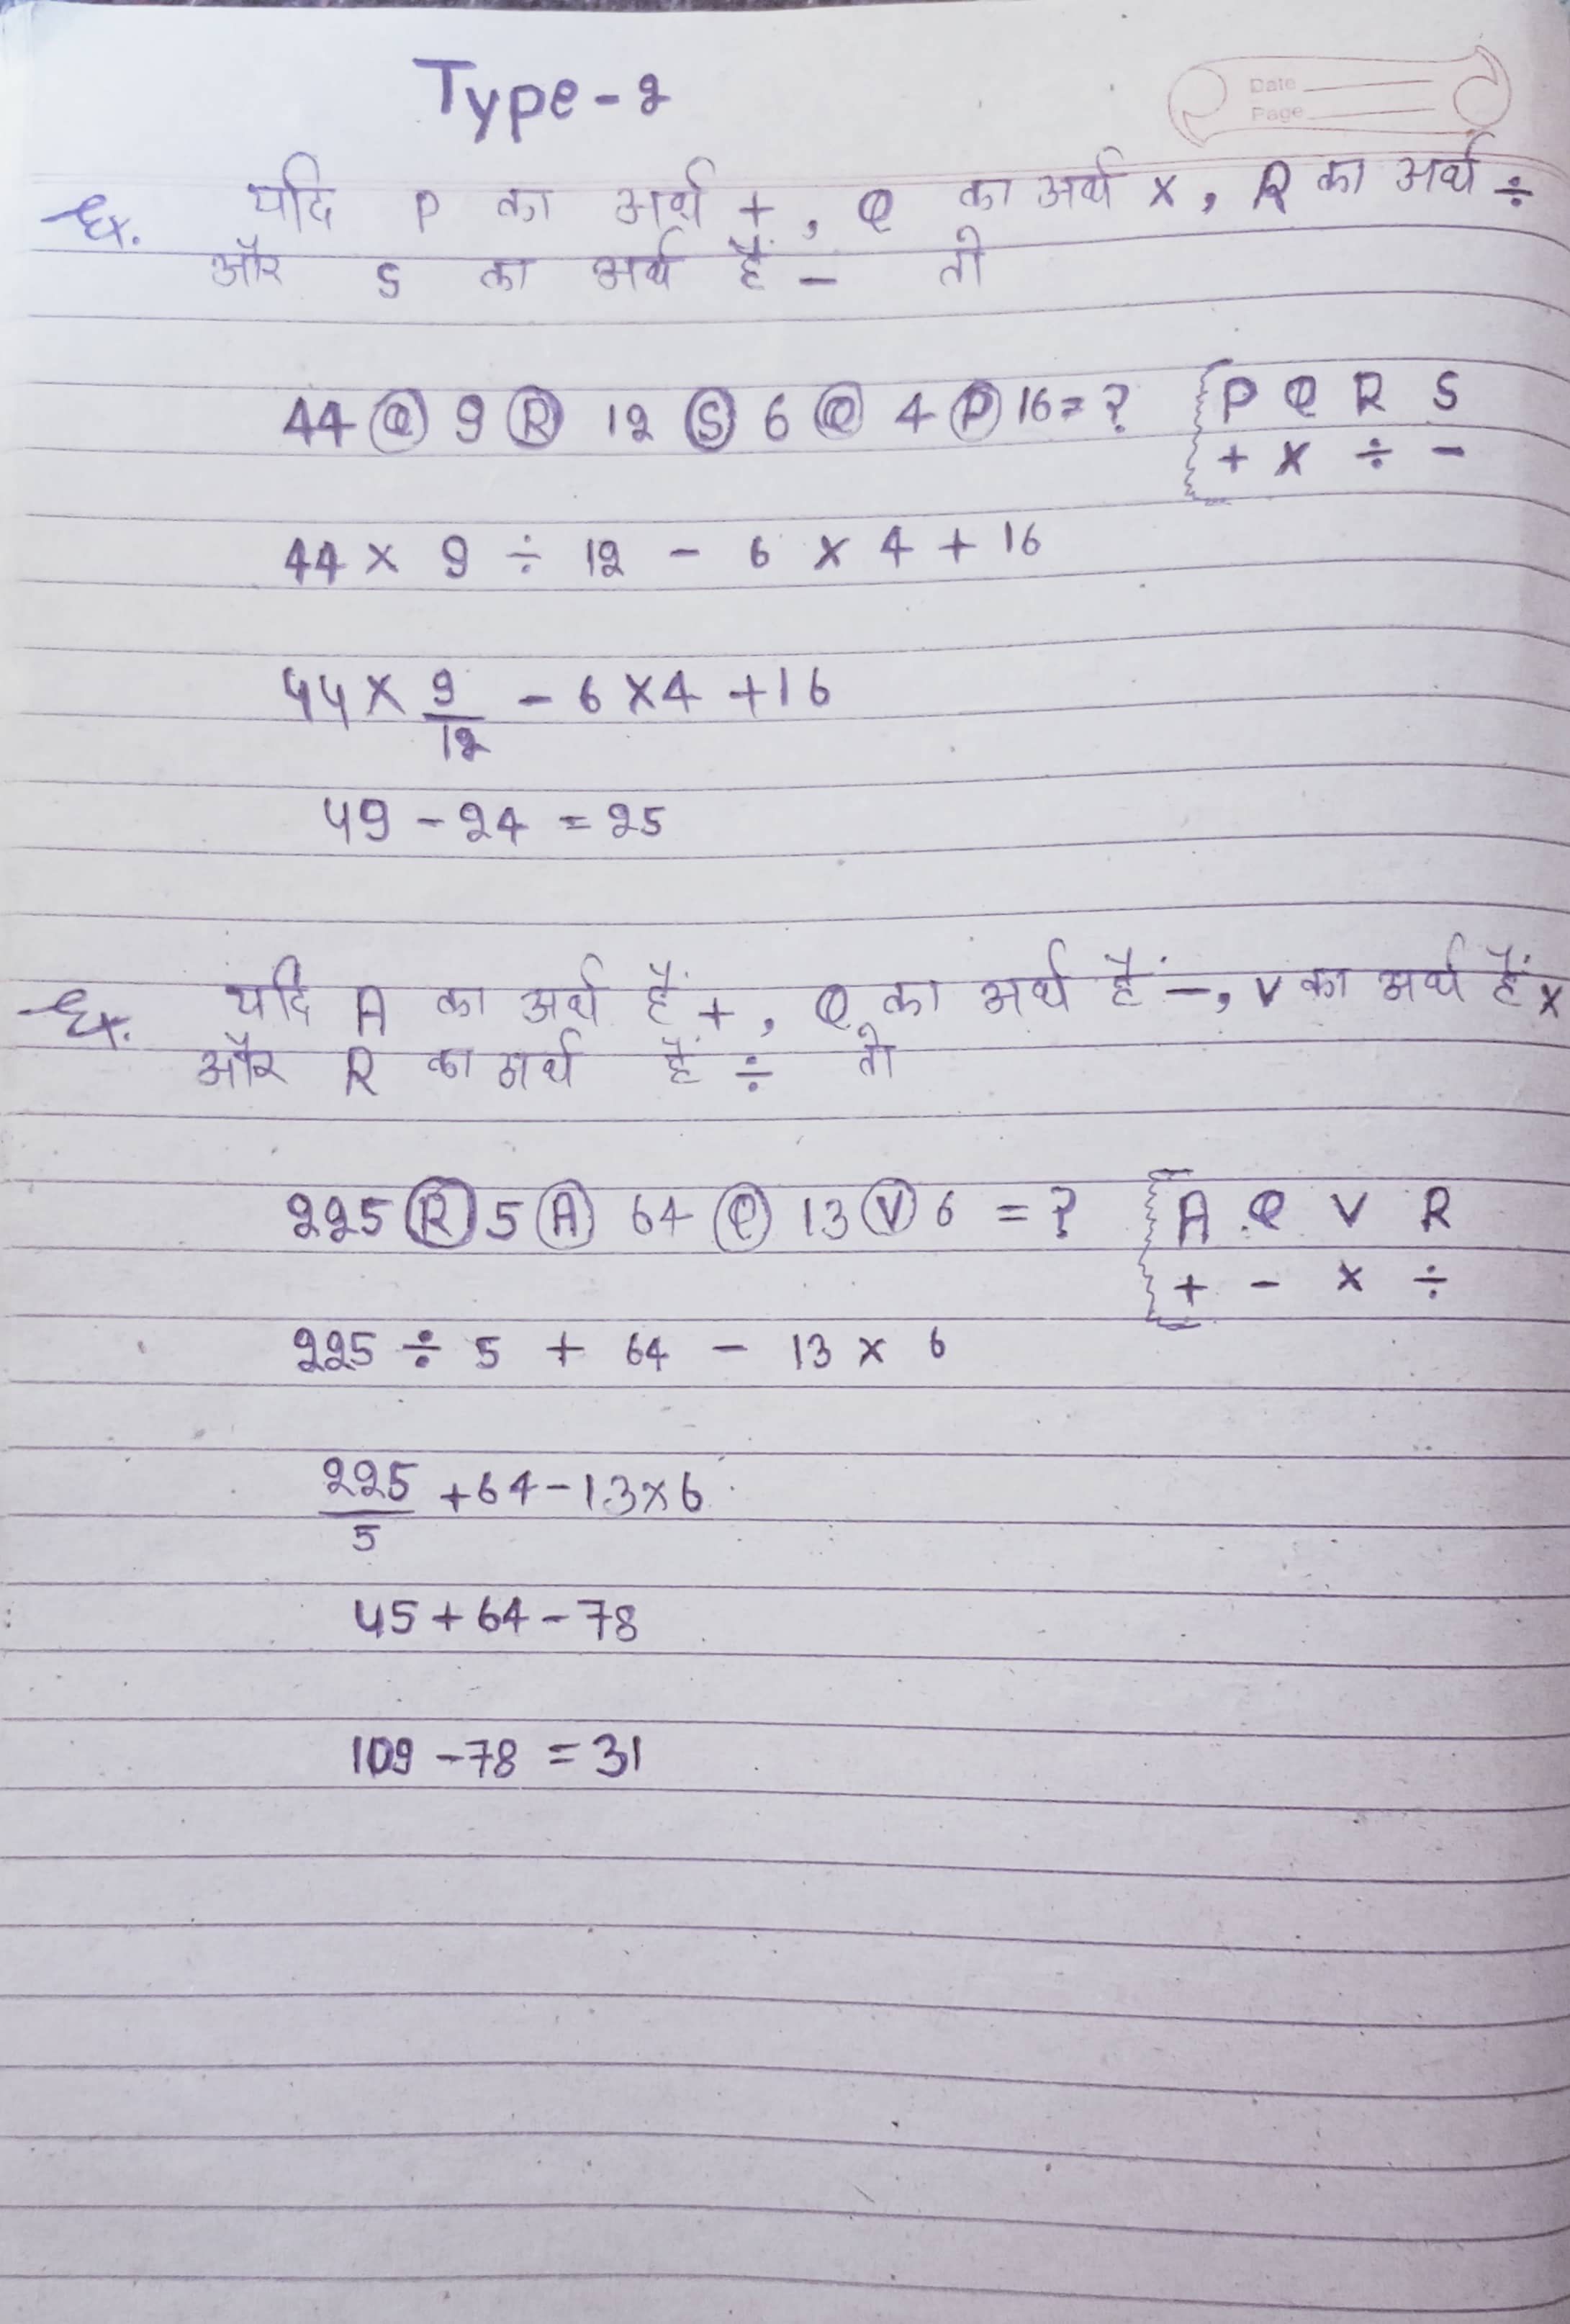 Type-2
Date
Page
Ex. यदि P का अर्थ +, Q का अर्थ ×, R का अर्थ ÷
और S का अर्थ हैं - तो
44 Q 9 R 12 S 6 Q 4 P 16 = ?
P Q R S
+ × ÷ -
44 × 9 ÷ 12 - 6 × 4 + 16
44 × 9/12 - 6 × 4 + 16
49 - 24 = 25
Ex. यदि A का अर्थ हैं +, Q का अर्थ हैं -, V का अर्थ हैं ×
और R का अर्थ हैं ÷ तो
225 R 5 A 64 Q 13 V 6 = ?
A Q V R
+ - × ÷
225 ÷ 5 + 64 - 13 × 6
225/5 + 64 - 13 × 6
45 + 64 - 78
109 - 78 = 31